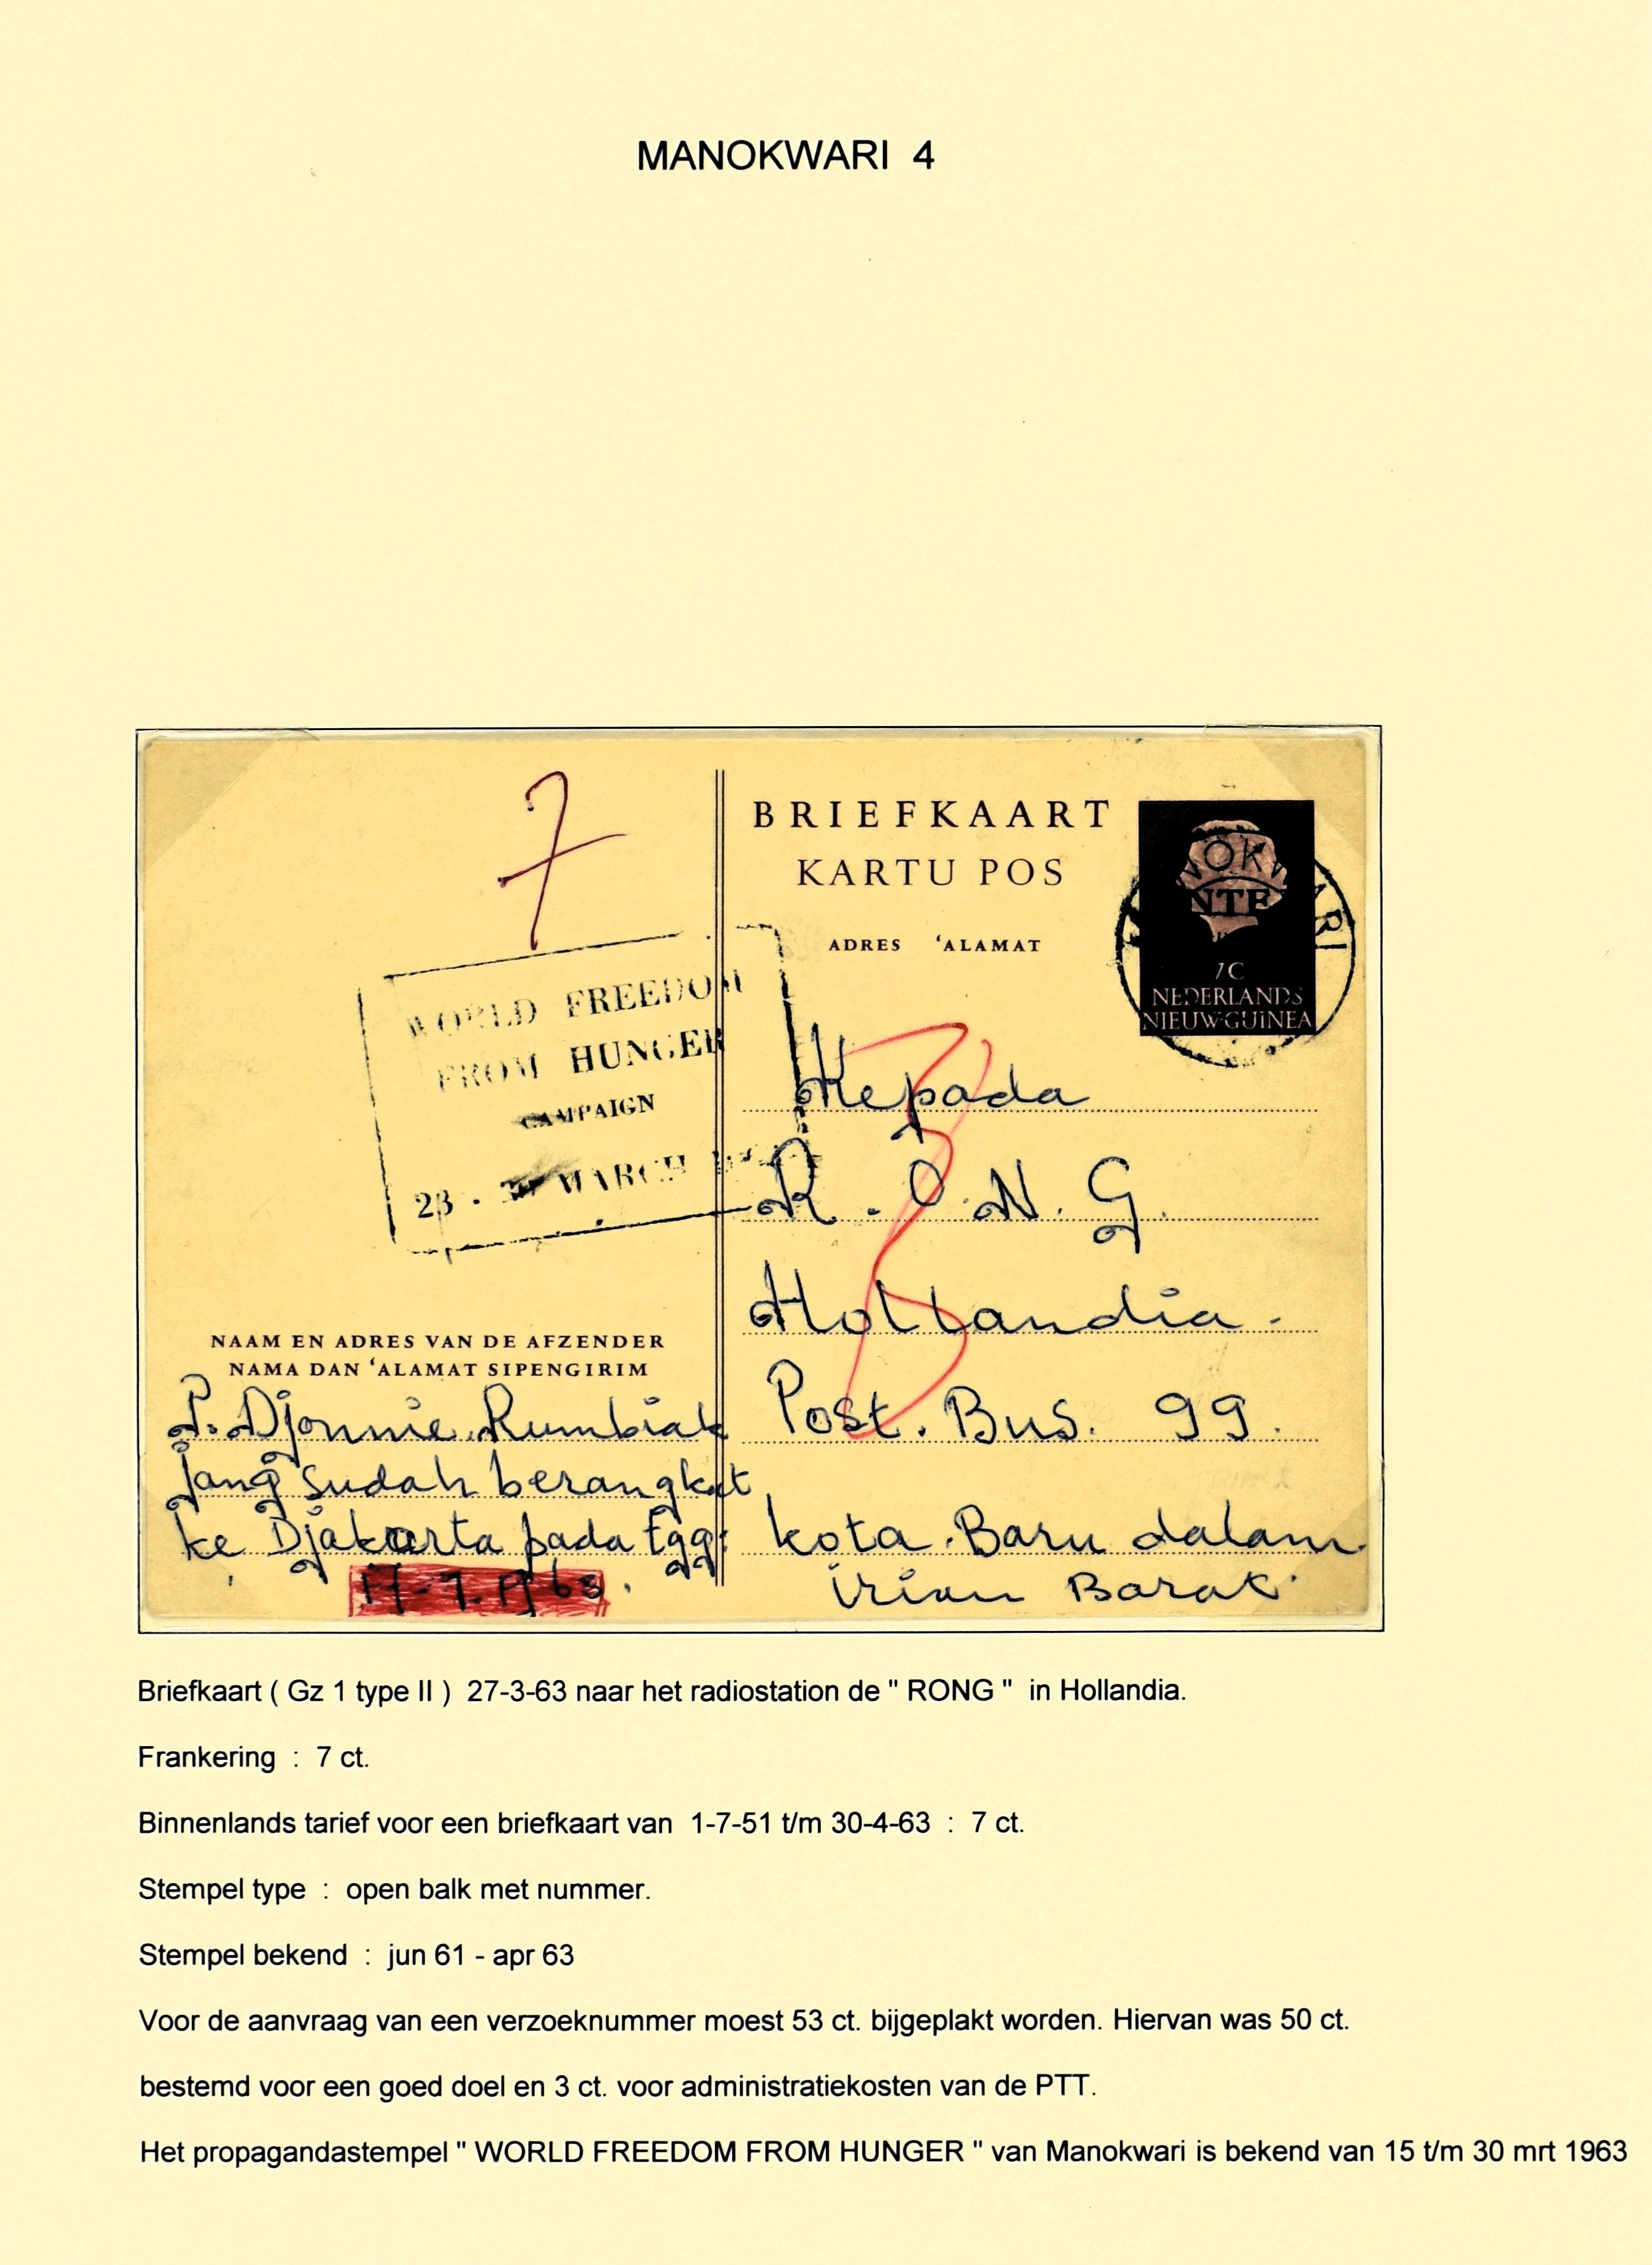 MANOKWARI 4
7
BRIEFKAART
KARTU POS
ADRES 'ALAMAT
7C
NEDERLANDS
NIEUW-GUINEA
NOKWARI
NTE
WORLD FREEDOM
FROM HUNGER
CAMPAIGN
23 - MARCH
Kepada
R.O.N.G.
Hollandia.
Post. Bus. 99.
Kota. Baru dalam.
irian Barat.
NAAM EN ADRES VAN DE AFZENDER
NAMA DAN 'ALAMAT SIPENGIRIM
P. Djonnie. Rumbiak
jang sudah berangkat
ke Djakarta pada tgg:
Briefkaart ( Gz 1 type II ) 27-3-63 naar het radiostation de " RONG " in Hollandia.
Frankering : 7 ct.
Binnenlands tarief voor een briefkaart van 1-7-51 t/m 30-4-63 : 7 ct.
Stempel type : open balk met nummer.
Stempel bekend : jun 61 - apr 63
Voor de aanvraag van een verzoeknummer moest 53 ct. bijgeplakt worden. Hiervan was 50 ct.
bestemd voor een goed doel en 3 ct. voor administratiekosten van de PTT.
Het propagandastempel " WORLD FREEDOM FROM HUNGER " van Manokwari is bekend van 15 t/m 30 mrt 1963